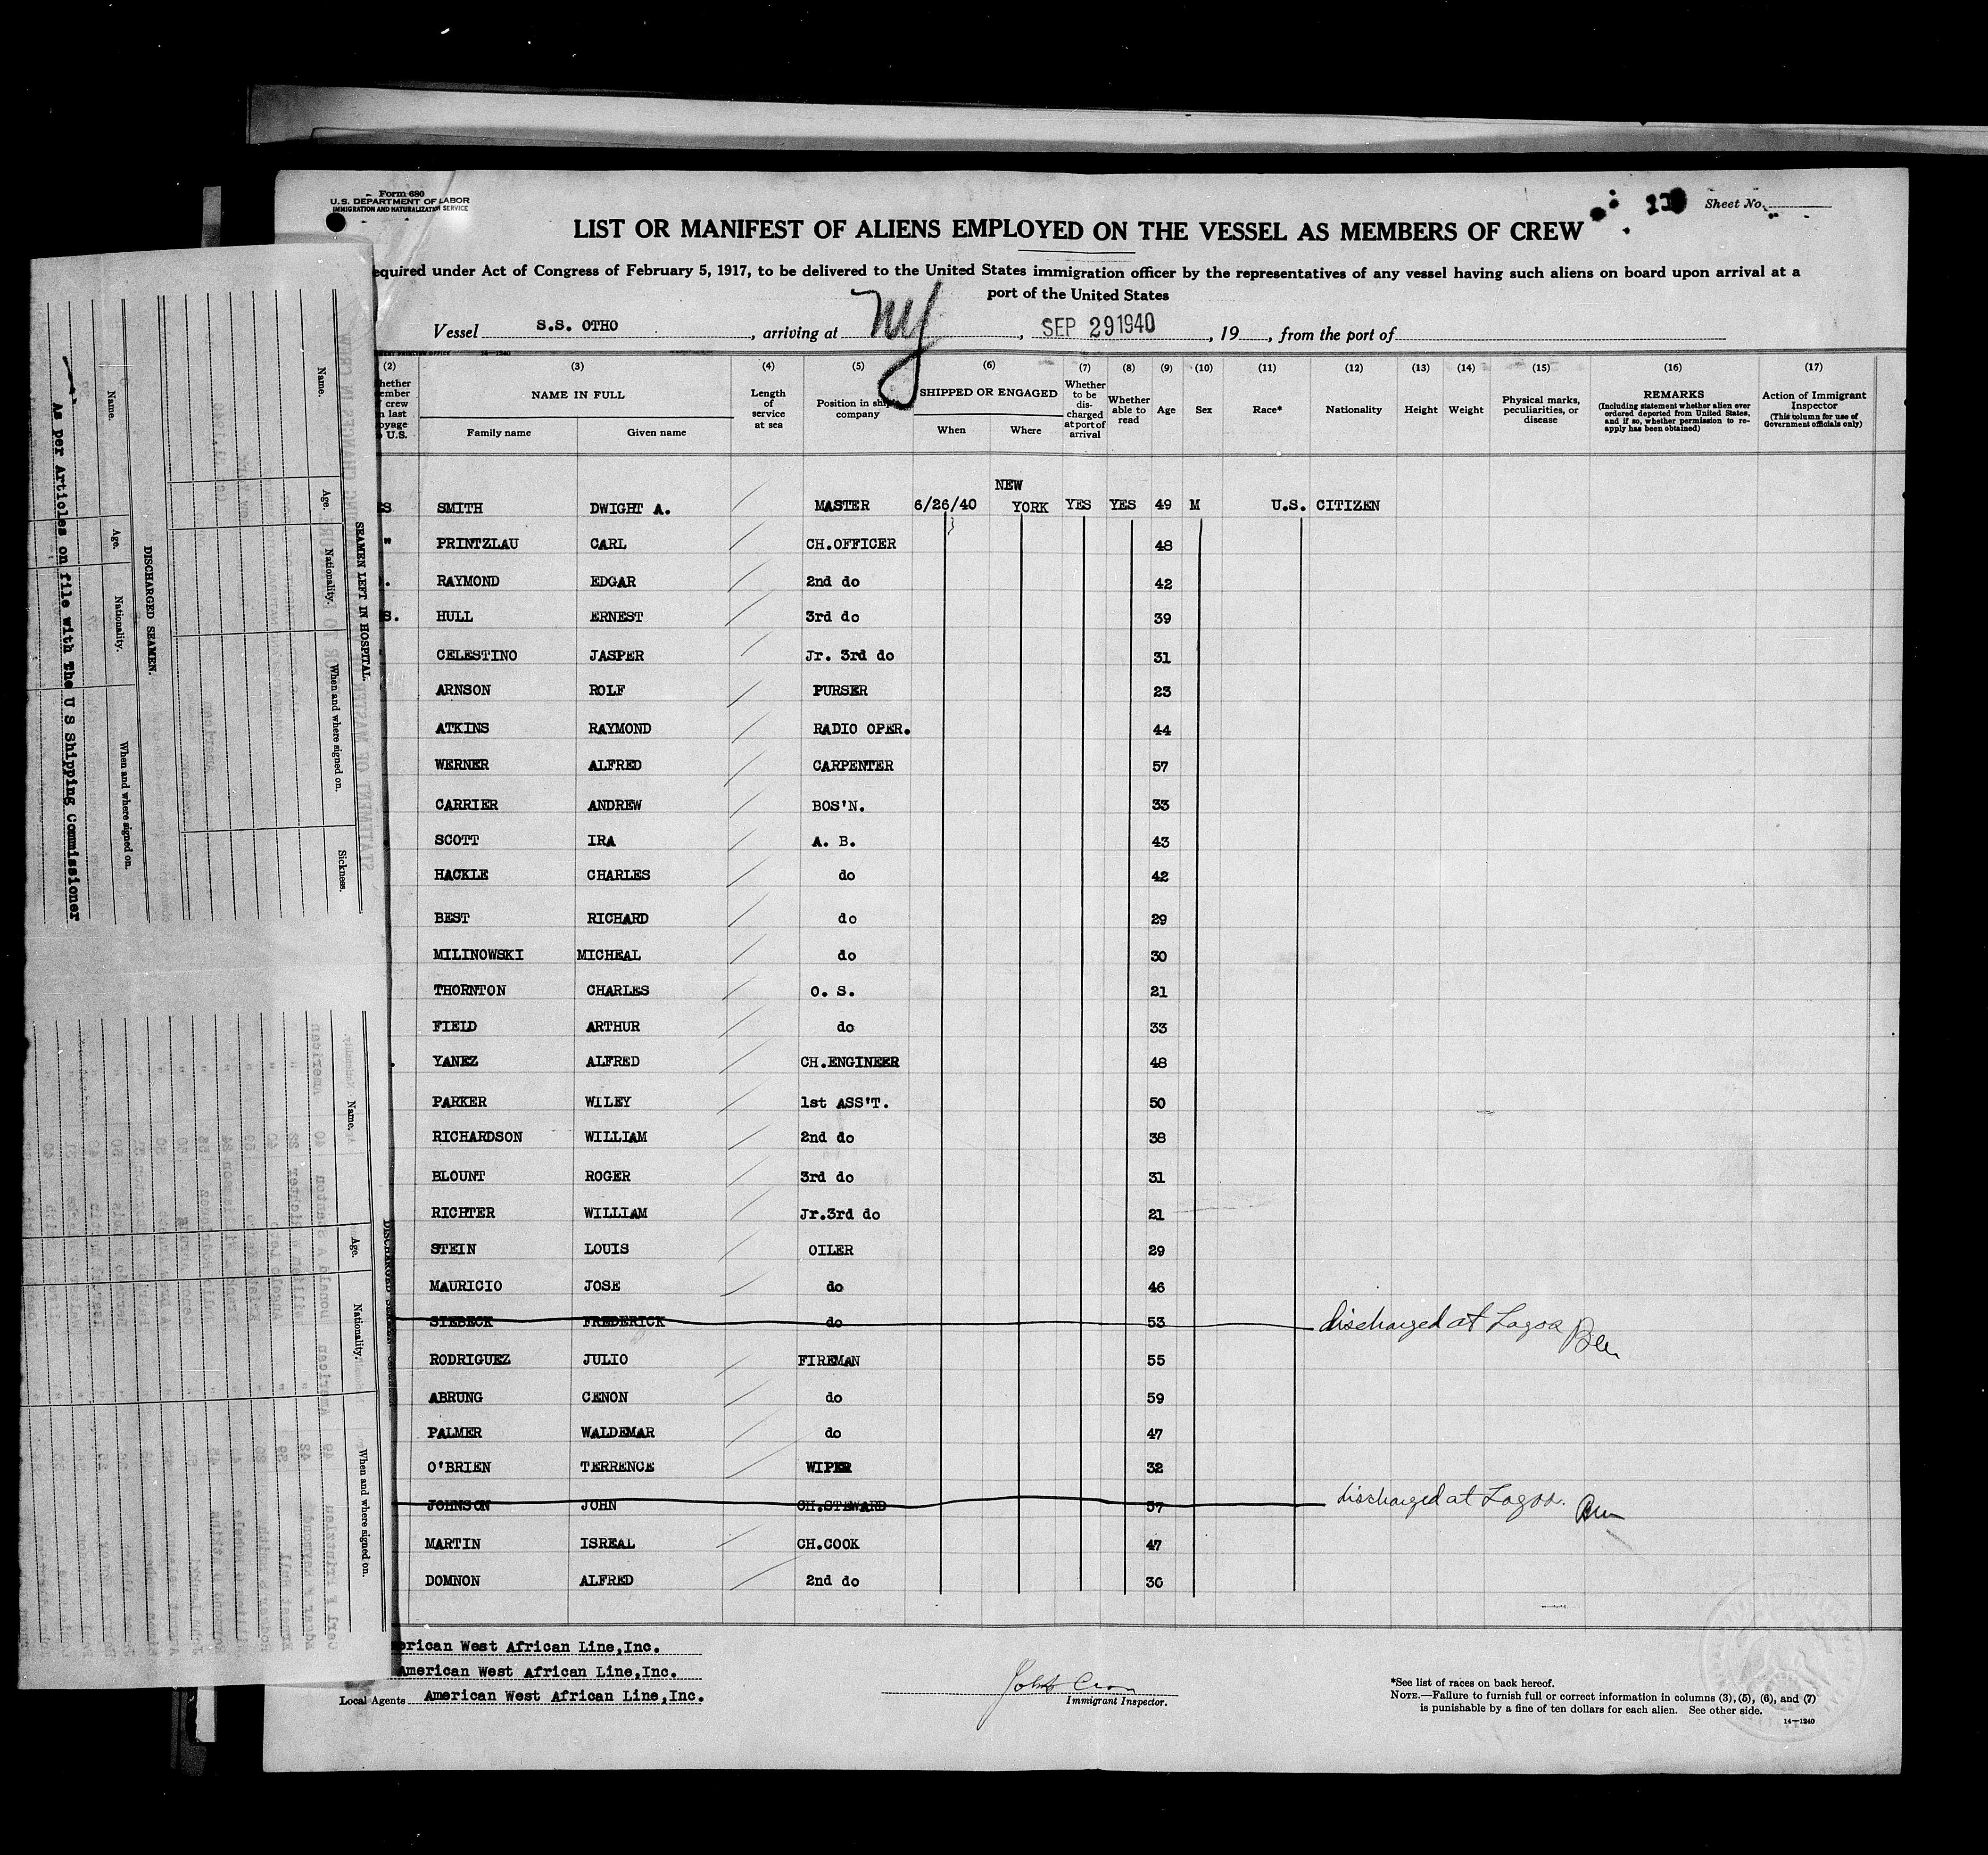 Form 680
U.S. DEPARTMENT OF LABOR
IMMIGRATION AND NATURALIZATION SERVICE
Sheet No.
LIST OR MANIFEST OF ALIENS EMPLOYED ON THE VESSEL AS MEMBERS OF CREW
equired under Act of Congress of February 5, 1917, to be delivered to the United States immigration officer by the representatives of any vessel having such aliens on board upon arrival at a
port of the United States
Vessel S.S. OTHO, arriving at NY, SEP 29 1940, 19, from the port of
(2) (3) (4) (5) (6) (7) (8) (9) (10) (11) (12) (13) (14) (15) (16) (17)
hether
ember
crew
n last
oyage
U.S.
NAME IN FULL
Family name Given name
Length
of
service
at sea
Position in ship's
company
SHIPPED OR ENGAGED
When Where
Whether
to be
dis-
charged
at port of
arrival
Whether
able to
read
Age Sex Race* Nationality Height Weight
Physical marks,
peculiarities, or
disease
REMARKS
(Including statement whether alien ever
ordered deported from United States,
and if so, whether permission to re-
apply has been obtained)
Action of Immigrant
Inspector
(This column for use of
Government officials only)
NEW
S SMITH DWIGHT A. MASTER 6/26/40 YORK YES YES 49 M U.S. CITIZEN
" PRINTZLAU CARL CH.OFFICER 48
RAYMOND EDGAR 2nd do 42
S. HULL ERNEST 3rd do 39
CELESTINO JASPER Jr. 3rd do 31
ARNSON ROLF PURSER 23
ATKINS RAYMOND RADIO OPER. 44
WERNER ALFRED CARPENTER 57
CARRIER ANDREW BOS'N. 33
SCOTT IRA A. B. 43
HACKLE CHARLES do 42
BEST RICHARD do 29
MILINOWSKI MICHEAL do 30
THORNTON CHARLES O. S. 21
FIELD ARTHUR do 33
YANEZ ALFRED CH.ENGINEER 48
PARKER WILEY 1st ASS'T. 50
RICHARDSON WILLIAM 2nd do 38
BLOUNT ROGER 3rd do 31
RICHTER WILLIAM Jr.3rd do 21
STEIN LOUIS OILER 29
MAURICIO JOSE do 46
SIEBECK FREDERICK do 53 discharged at Lagos
RODRIGUEZ JULIO FIREMAN 55
ABRUNG CENON do 59
PALMER WALDEMAR do 47
O'BRIEN TERRENCE WIPER 32
JOHNSON JOHN CH.STEWARD 57 discharged at Lagos.
MARTIN ISREAL CH.COOK 47
DOMNON ALFRED 2nd do 36
erican West African Line,Inc.
American West African Line,Inc.
Local Agents American West African Line,Inc.
Immigrant Inspector.
*See list of races on back hereof.
NOTE.—Failure to furnish full or correct information in columns (3), (5), (6), and (7)
is punishable by a fine of ten dollars for each alien. See other side.
14—1240
SEAMEN LEFT IN HOSPITAL.
Name. Age. Nationality. When and where signed on. Sickness.
DISCHARGED SEAMEN.
Name. Age. Nationality. When and where signed on.
As per Articles on file with The U S Shipping Commissioner
Name. Age. Nationality. When and where signed on.